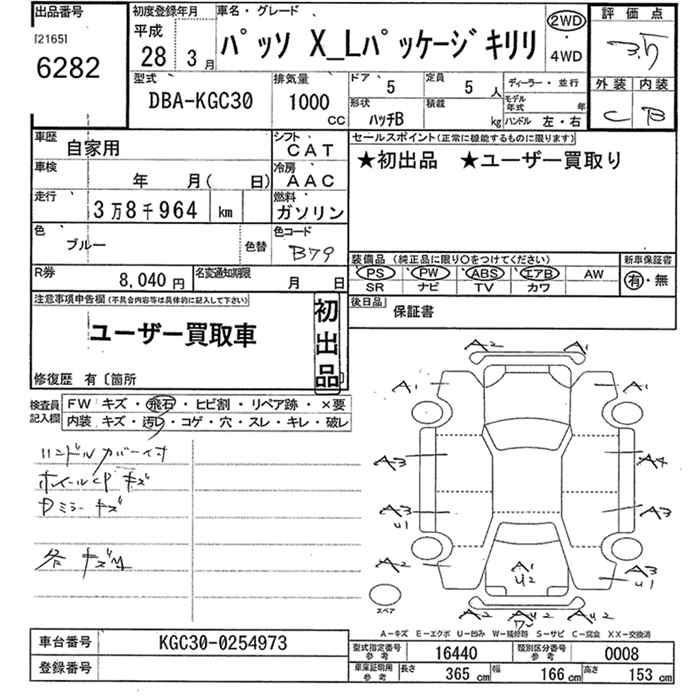 出品番号
[2165]
6282
初度登録年月
平成
28 3月
車名・グレード
パッソ X_Lパッケージキリリ
2WD
・
4WD
評価点
3.5
外装 内装
C B
型式
DBA-KGC30
排気量
1000
CC
ドア 5
定員 5 人
形状
ハッチB
積載
kg
ディーラー・並行
モデル
年式 年
ハンドル 左・右
車歴
自家用
シフト
CAT
車検
年 月( 日)
冷房
AAC
走行
3万8千964 km
燃料
ガソリン
色
ブルー
色替
色コード
B79
R券
8,040円
名変通知期限
月 日
セールスポイント(正常に機能するものに限ります)
★初出品 ★ユーザー買取り
装備品(純正品に限り○をつけてください)
PS PW ABS エアB AW
SR ナビ TV カワ
新車保証書
有・無
後日品
保証書
注意事項申告欄(不具合内容等は具体的に記入して下さい)
ユーザー買取車
初出品
修復歴 有〔箇所 〕
検査員
記入欄
FW キズ・飛石・ヒビ割・リペア跡・×要
内装 キズ・汚レ・コゲ・穴・スレ・キレ・破レ
ハンドルカバー付
ホイールCP キズ
Dミラー キズ
各 キズ
A2 A1
A1 A1
A3 A4
A3 U1 A3
A2 A1 U2 A3 U1
A2 A U2 A U2
スペア
A-キズ E-エクボ U-凹み W-補修跡 S-サビ C-腐食 XX-交換済
車台番号
KGC30-0254973
登録番号
型式指定番号
参考
16440
類別区分番号
参考
0008
車庫証明用
参考
長さ 365 cm
幅 166 cm
高さ 153 cm